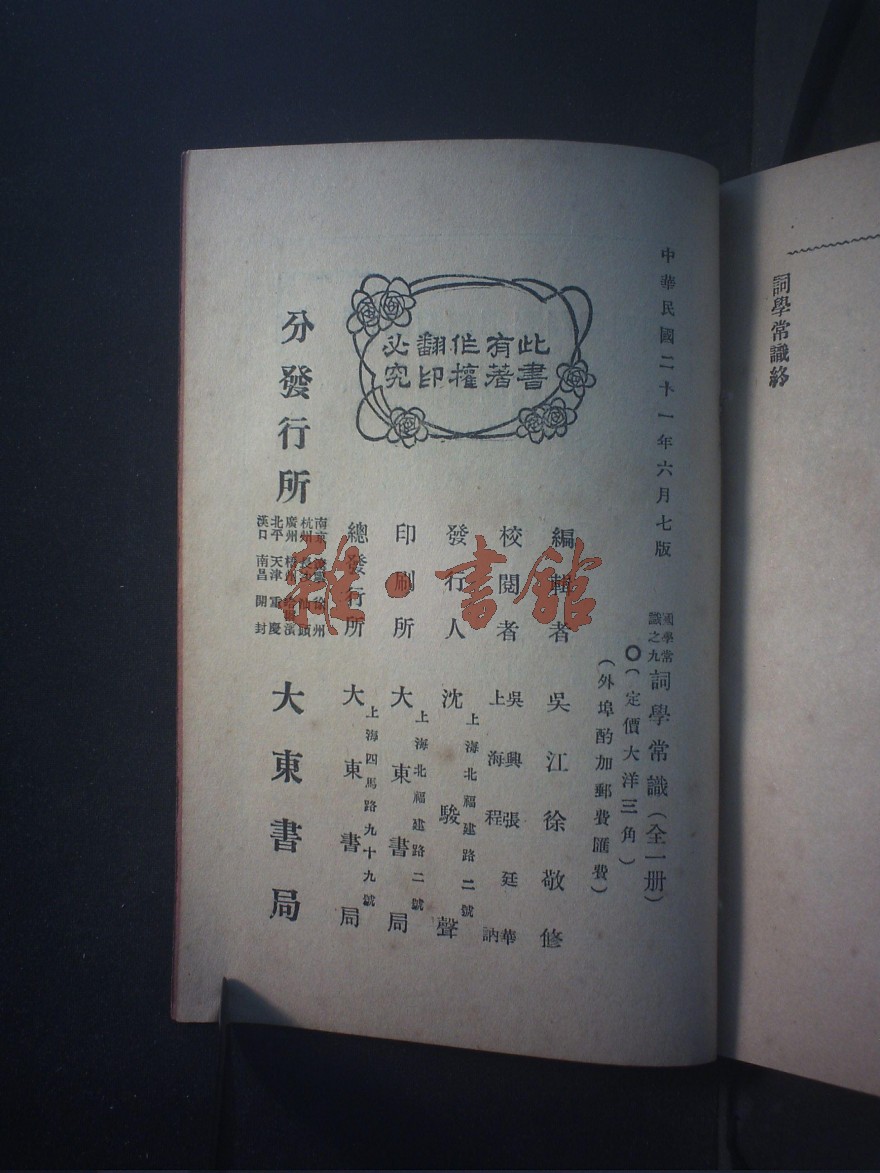 詞學常識終
中華民國二十一年六月七版
國學常識之九 詞學常識（全一册）
（定價大洋三角）
（外埠酌加郵費匯費）
編輯者 吳江徐敬修
校閱者 吳興張廷華 上海程訥
發行人 沈駿聲 上海北福建路二號
印刷所 大東書局 上海北福建路二號
總發行所 大東書局 上海四馬路九十九號
此書
有著
作權
翻印
必究
分發行所 大東書局
南京 徐州
杭州 長沙 汕頭
廣州 梧州 哈爾濱
北平 天津 重慶
漢口 南昌 開封
雜·書館